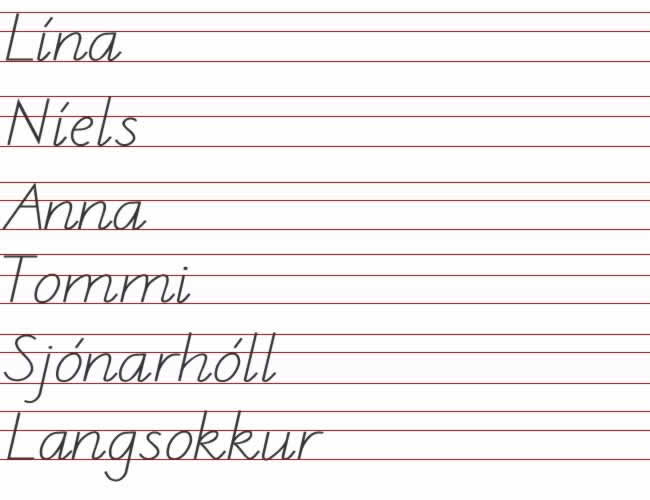 Lína
Níels
Anna
Tommi
Sjónarhóll
Langsokkur